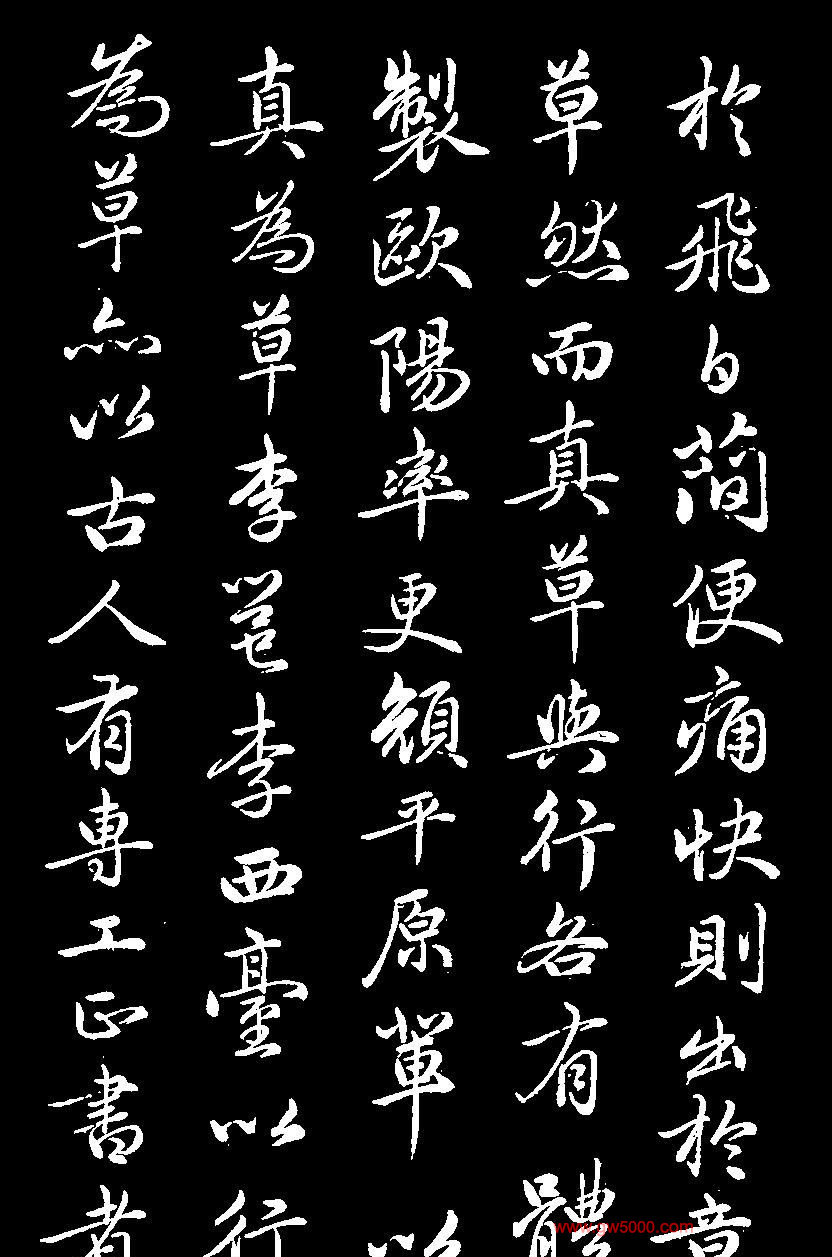 於飛白簡便痛快則出於章
草然而真草與行各有體
製歐陽率更顏平原輩以
真為草李邕李西臺以行
為草亦以古人有專工正書者
www.yw5000.com